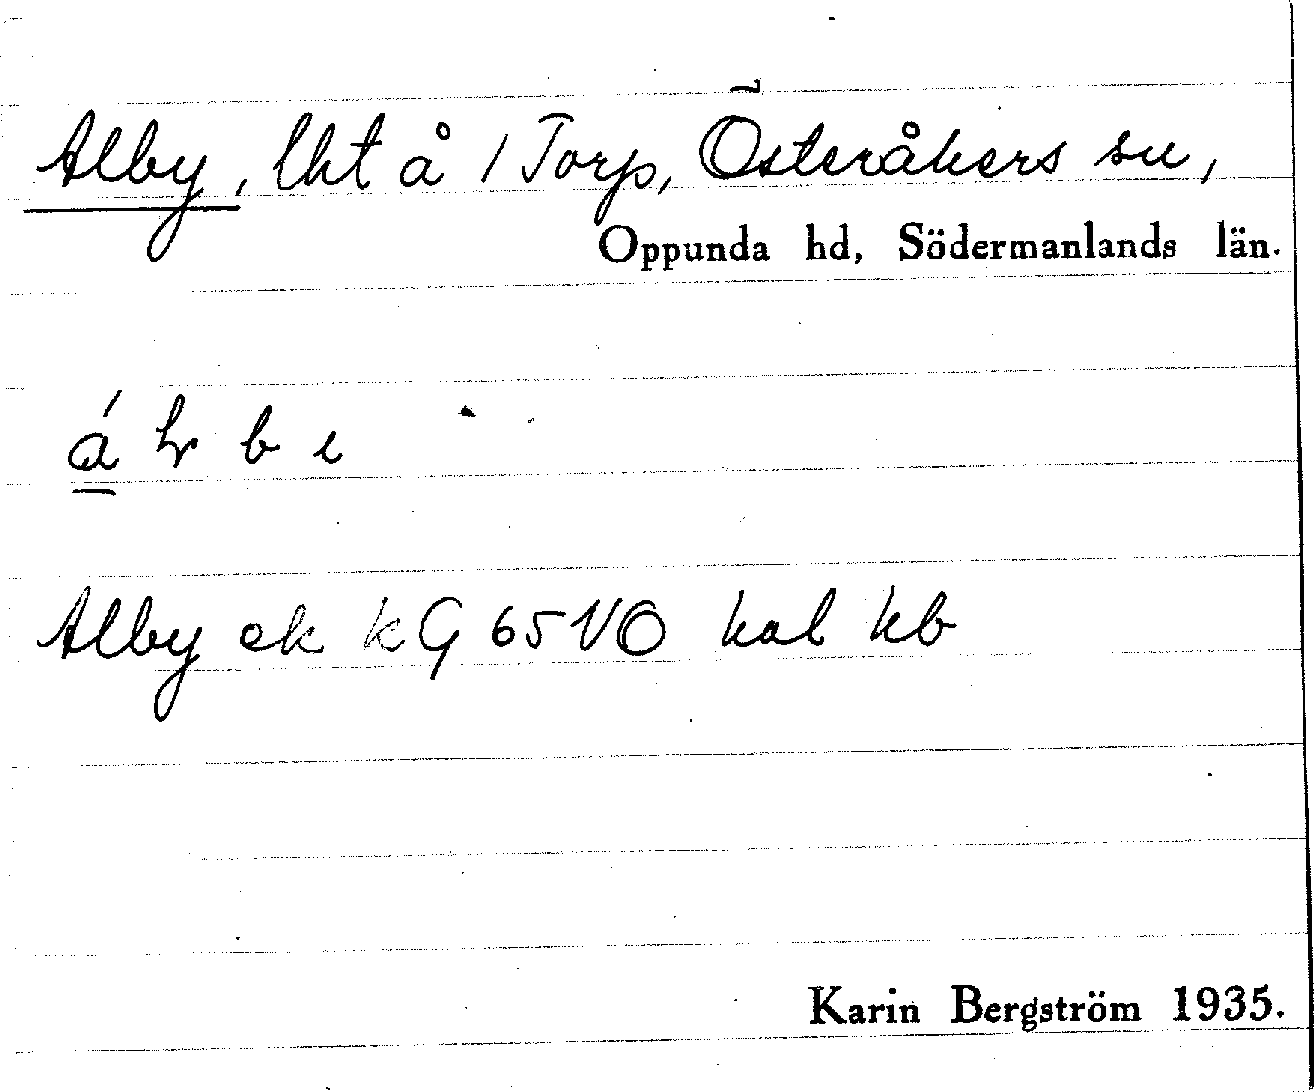 Alby, lht å 1 Torp, Österåkers sn,
Oppunda hd, Södermanlands län.
á b
Alby ek kG 65 NO hal kb
Karin Bergström 1935.